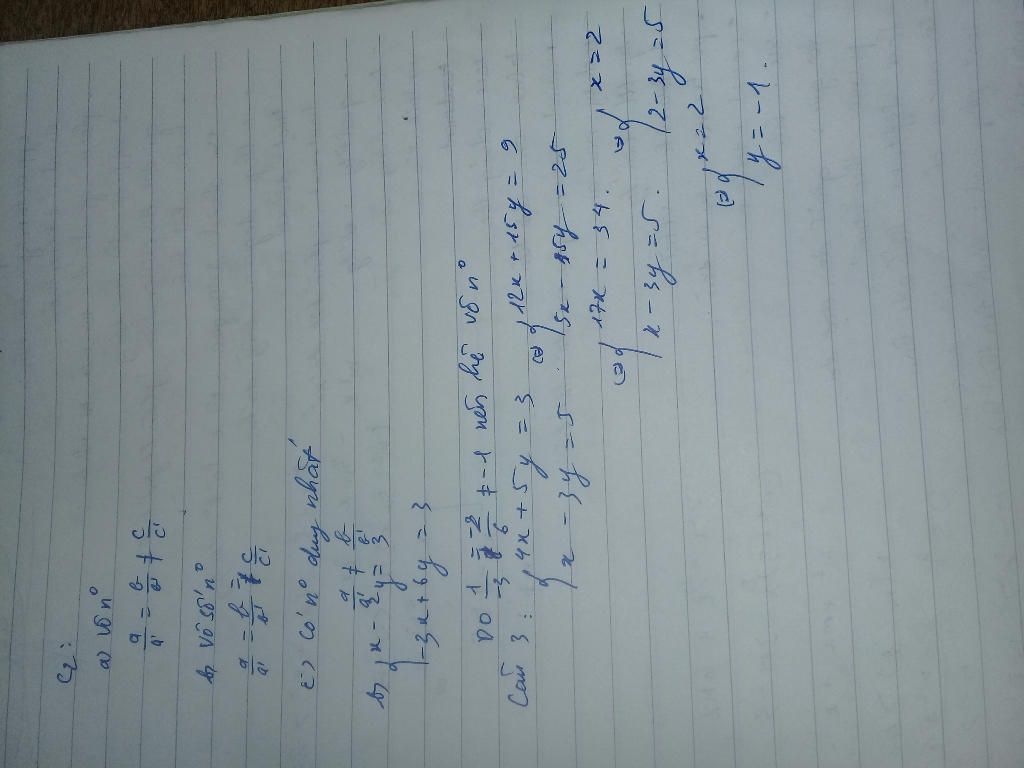 C2:
a) vô n°
a/a' = b/b' ≠ c/c'
b) vô số n°
a/a' = b/b' = c/c'
c) có n° duy nhất
a/a' ≠ b/b'
b) { x - 2y = 3
-3x + 6y = 3
Do 1/-3 = -2/6 ≠ -1 nên hệ vô n°
Câu 3: { 4x + 5y = 3 ⇔ { 12x + 15y = 9
x - 3y = 5. 5x - 15y = 25
⇔ { 17x = 34. ⇔ { x = 2
x - 3y = 5. 2 - 3y = 5
⇔ { x = 2
y = -1.